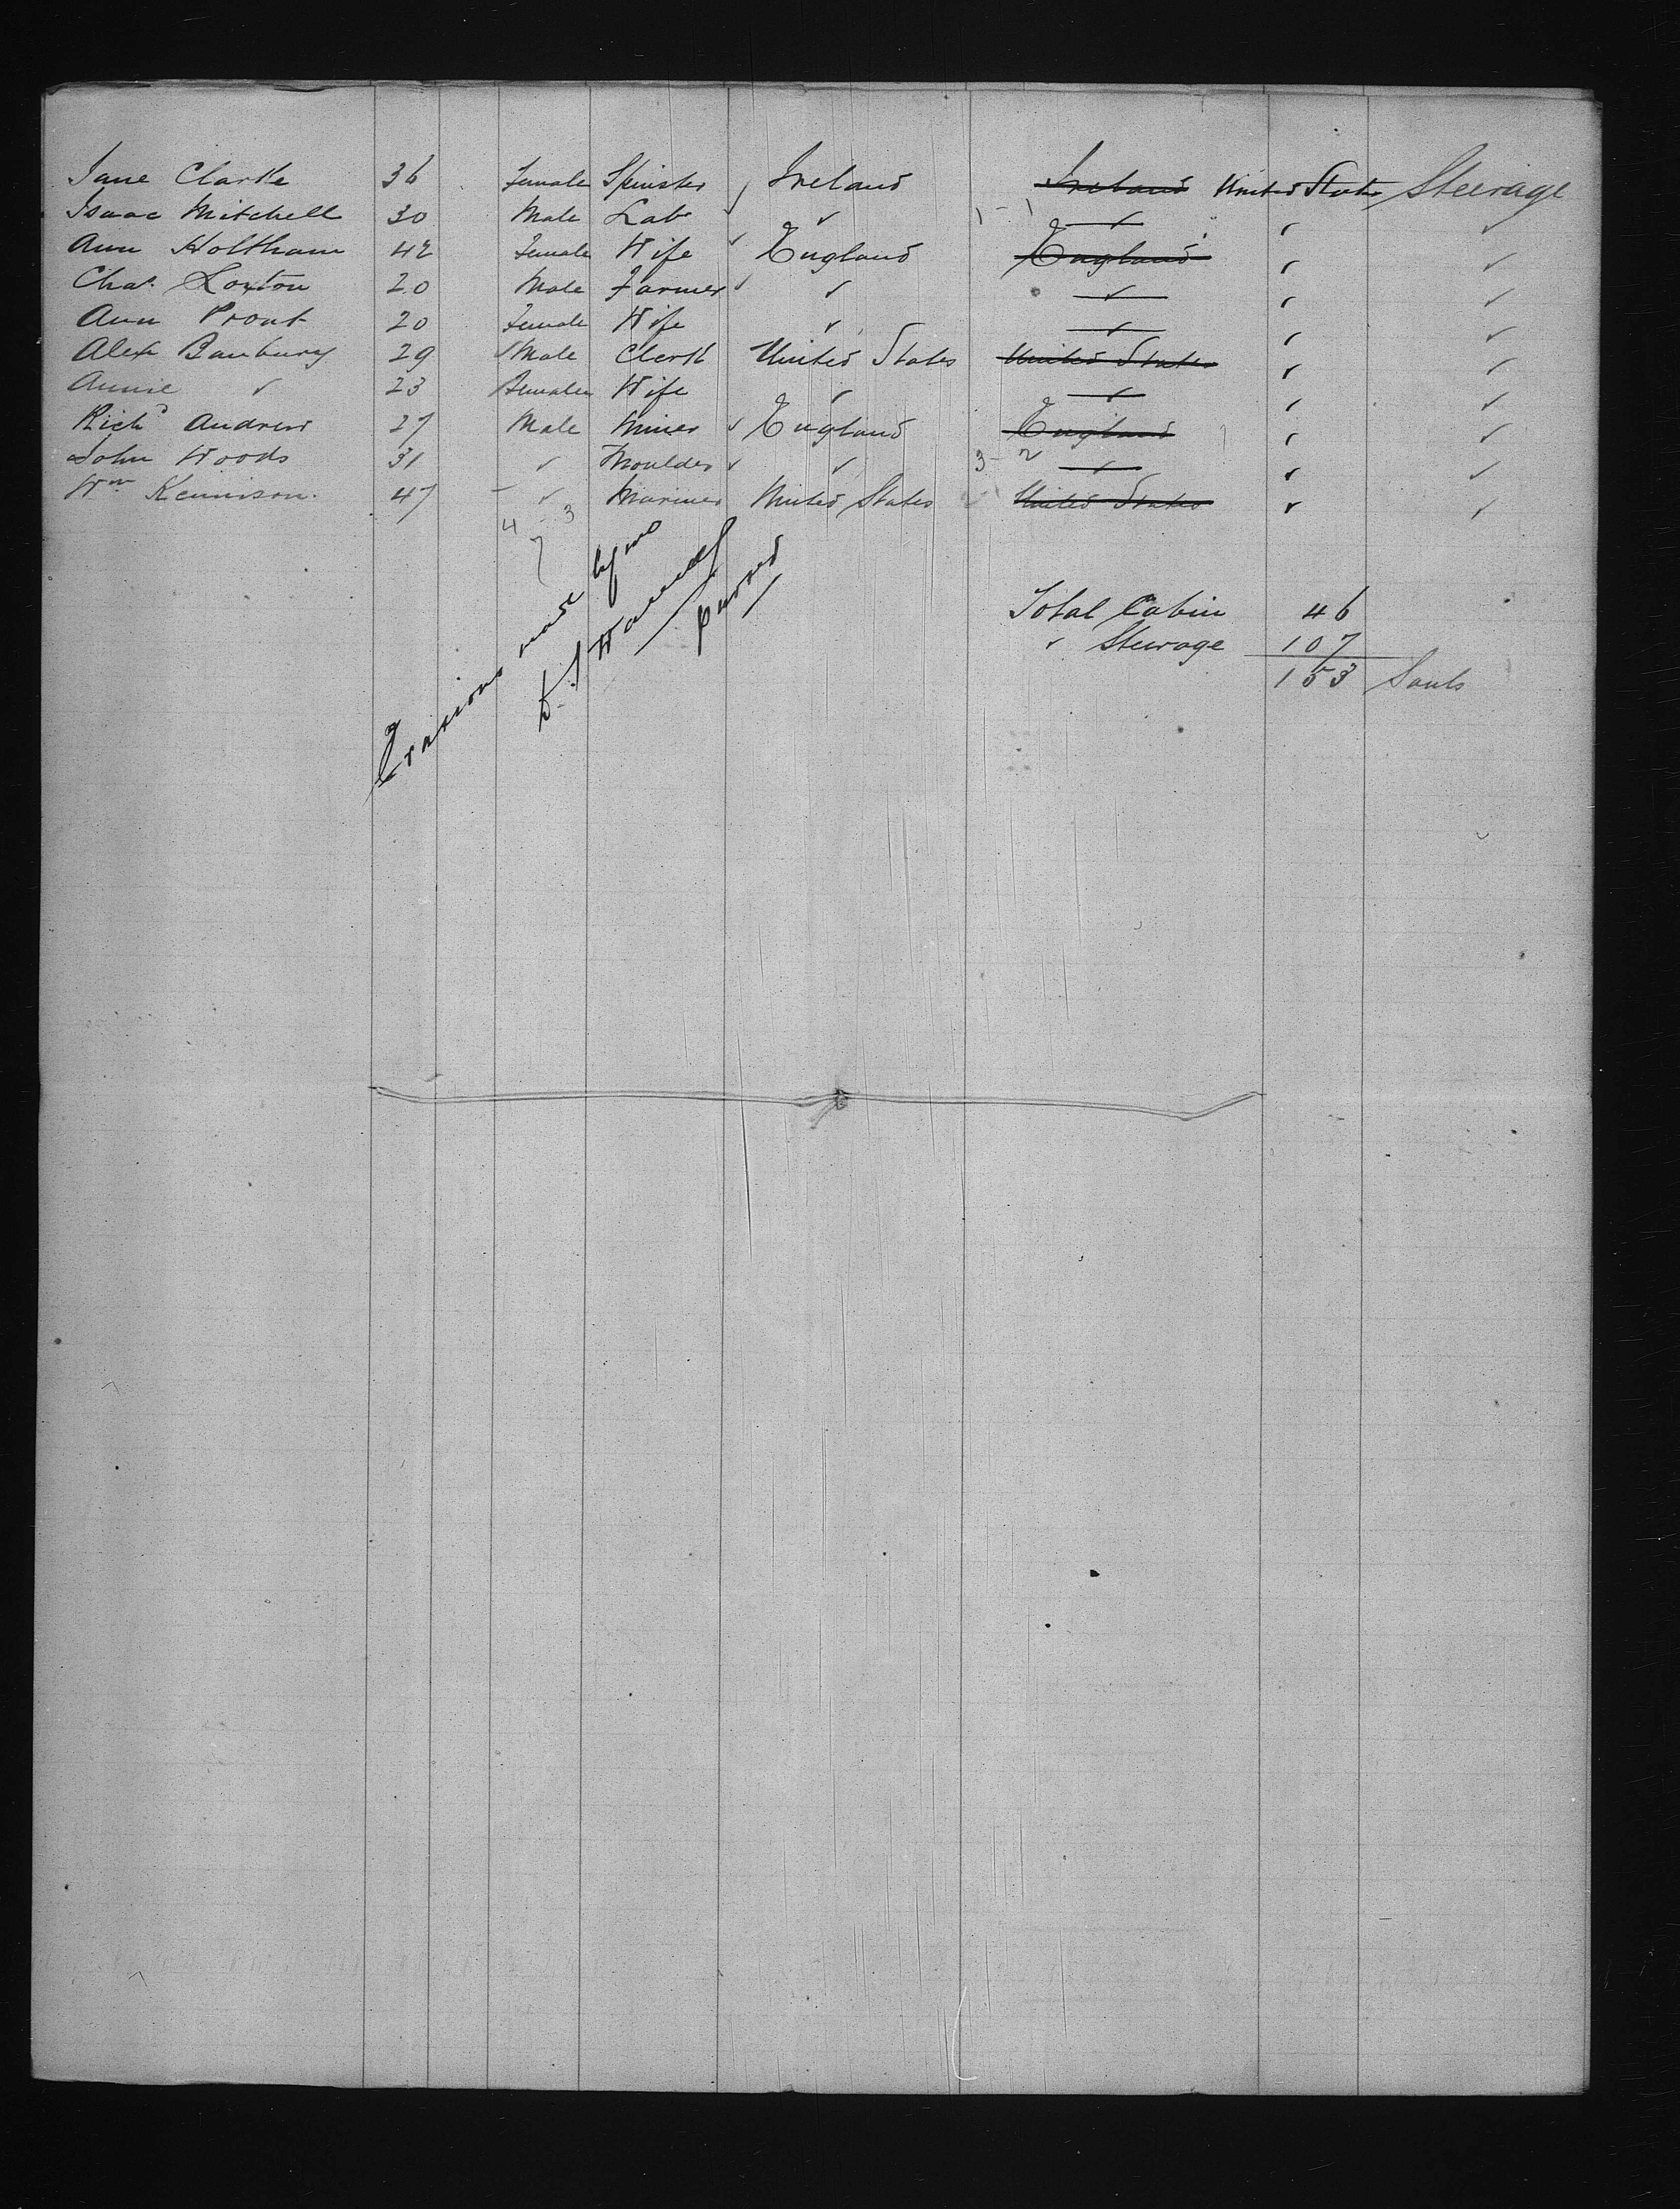 Jane Clarke 36 Female Spinster Ireland Ireland United States Steerage
Isaac Mitchell 30 Male Labr ✓ ✓ ✓ ✓
Ann Holtham 42 Female Wife ✓ England England ✓ ✓
Chas. Loxton 20 Male Farmer ✓ ✓ ✓ ✓ ✓
Ann Prout 20 Female Wife ✓ ✓ ✓ ✓
Alex Banbury 29 Male Clerk United States United States ✓ ✓
Annie ✓ 23 Female Wife ✓ ✓ ✓ ✓
Richd Andrew 27 Male Miner ✓ England England ✓ ✓
John Woods 31 ✓ Moulder ✓ ✓ 3-2 ✓ ✓ ✓
Wm Kennison. 47 ✓ Mariner United States United States ✓ ✓
4-3
7
Erasions made by me
Purser
Total Cabin 46
✓ Steerage 107
153 Souls